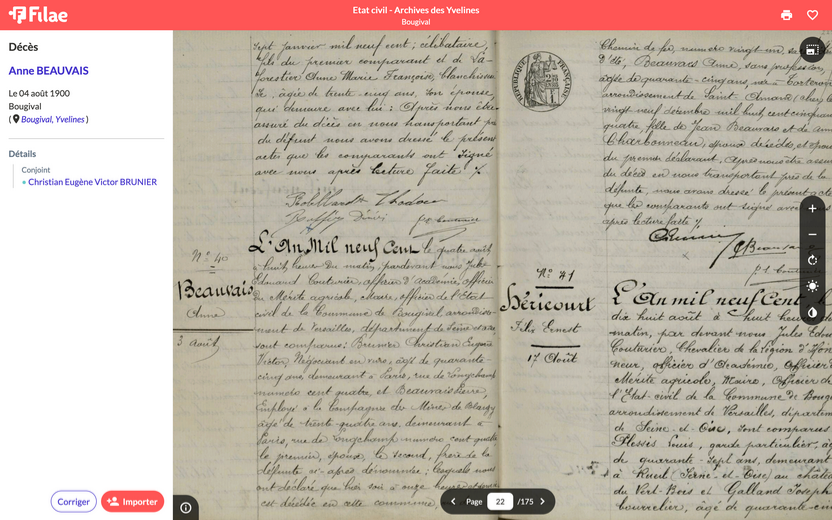 Filae
Etat civil - Archives des Yvelines
Bougival
Décès
Anne BEAUVAIS
Le 04 août 1900
Bougival
( Bougival, Yvelines )
Détails
Conjoint
Christian Eugène Victor BRUNIER
Corriger
Importer
sept janvier mil neuf cent ; célibataire,
fils du premier comparant et de La-
forestier Anne Marie Françoise, blanchisseu
se, âgée de trente-cinq ans, son épouse,
qui demeure avec lui. Après nous être
assuré du décès en nous transportant près
du défunt nous avons dressé le présent
acte que les comparants ont signé
avec nous après lecture faite ./.
N° 40
Beauvais
Anne
3 Août
L'An Mil neuf Cent le quatre août
à huit heures du matin, pardevant nous Jules
Edouard Couturier, officier d'Académie, officier
du Mérite agricole, Maire, officier de l'Etat
civil de la Commune de Bougival arrondisse-
ment de Versailles, département de Seine et Oise
sont comparus : Brunier Christian Eugène
Victor, Négociant en vins, âgé de quarante-
cinq ans, demeurant à Paris, rue de Longchamp
numéro cent quatre, et Beauvais Pierre,
Employé à la Compagnie des Mines de Blanzy
âgé de trente quatre ans, demeurant à
Paris, rue de Longchamp numéro cent quatre
le premier, époux, le second, frère de la
défunte ci-après dénommée ; lesquels nous
ont déclaré que hier soir à onze heures
est décédée en cette commune,
RÉPUBLIQUE FRANÇAISE
Chemin de fer, numéro vingt-un, sa
Beauvais Anne, sans profession,
âgée de quarante-cinq ans, née à
arrondissement de Saint-Amand (Cher) le
vingt neuf décembre mil huit cent cinquante
quatre, fille de Jean Beauvais et de
Charbonneau, époux décédés, et épouse
du premier déclarant. Après nous être assuré
du décès en nous transportant près de la
défunte, nous avons dressé le présent acte
que les comparants ont signé avec nous
après lecture faite ./.
N° 41
Héricourt
Jules Ernest
17 Août
L'An mil neuf Cent le
dix huit août à huit heures du
matin, par devant nous Jules Edouard
Couturier, Chevalier de la Légion d'Hon
neur, officier d'Académie, Officier
Mérite agricole, Maire, Officier de
l'Etat-civil de la Commune de Bougi
arrondissement de Versailles, départem
de Seine-et-Oise, sont comparus
Plessis Louis, garde particulier, â
de quarante-sept ans, demeurant
à Rueil (Seine-et-Oise) au château
du Vert-Bois et Galland Joseph
âgé de quarante-
Page 22 /175